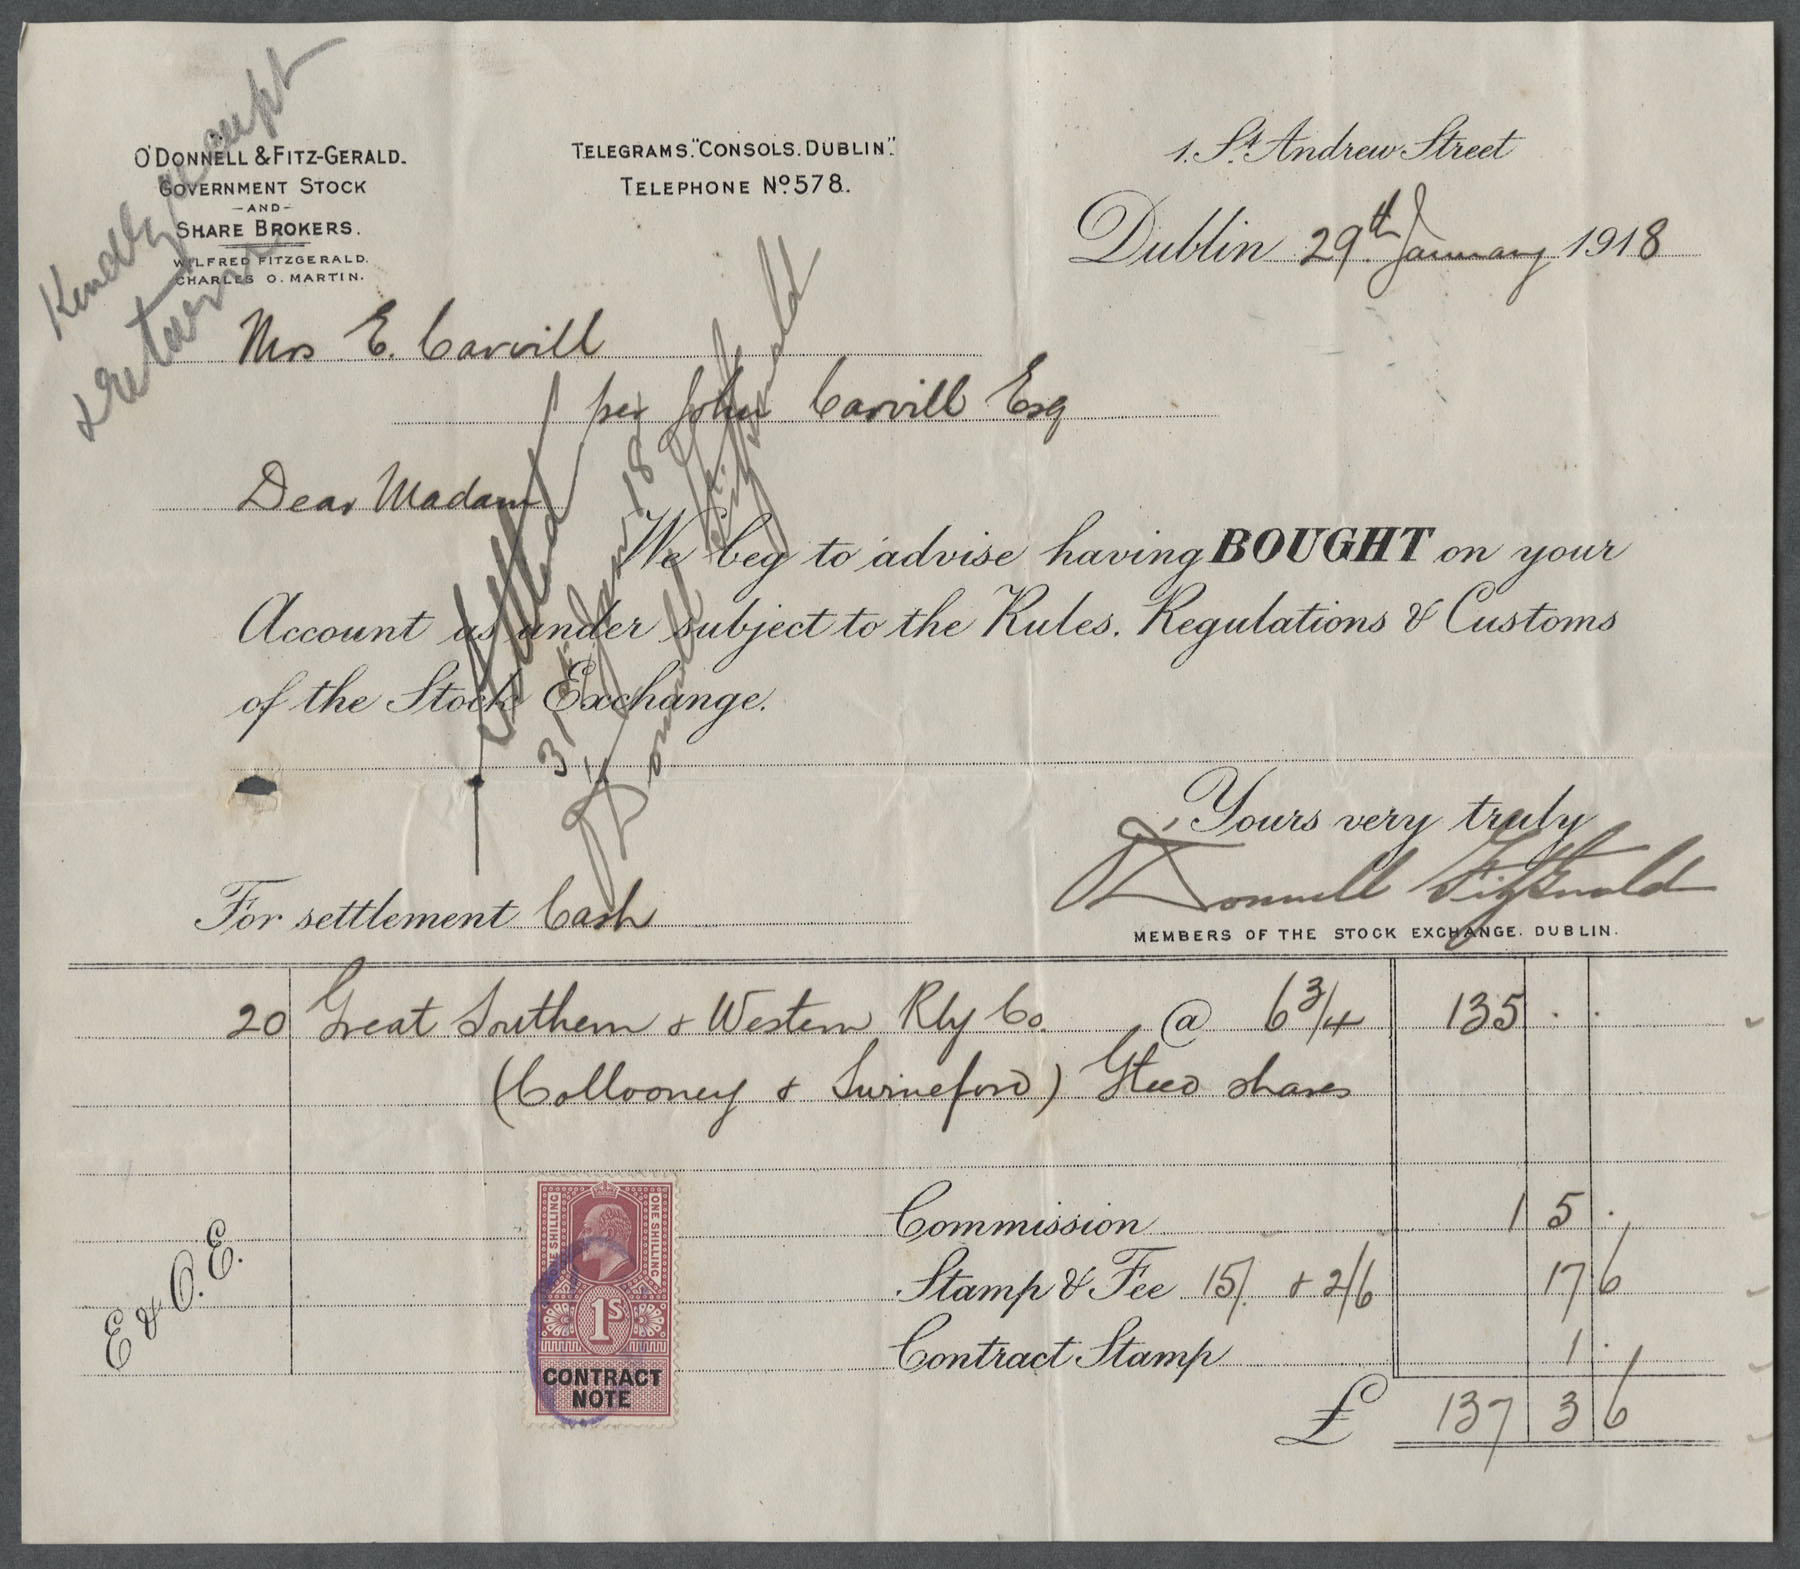 Kindly receipt
& return
O'DONNELL & FITZ-GERALD.
GOVERNMENT STOCK
-AND-
SHARE BROKERS.
WILFRED FITZGERALD.
CHARLES O. MARTIN.
TELEGRAMS. "CONSOLS. DUBLIN".
TELEPHONE No. 578.
1. St. Andrew Street
Dublin 29th January 1918
Mrs E. Carvill
per John Carvill Esq
Dear Madam
We beg to advise having BOUGHT on your
Account as under subject to the Rules. Regulations & Customs
of the Stock Exchange.
Settled
31st Jany. 18
O'Donnell & Fitzgerald
Yours very truly
O'Donnell & Fitzgerald
For settlement Cash
MEMBERS OF THE STOCK EXCHANGE. DUBLIN.
20 Great Southern & Western Rly Co. @ 6 3/4 135 . .
(Collooney & Swineford) Gteed shares
Commission 1 5 .
Stamp & Fee 15/. & 2/6 17 6
Contract Stamp 1 .
£ 137 3 6
E & O. E.
ONE SHILLING
ONE SHILLING
1S
CONTRACT
NOTE